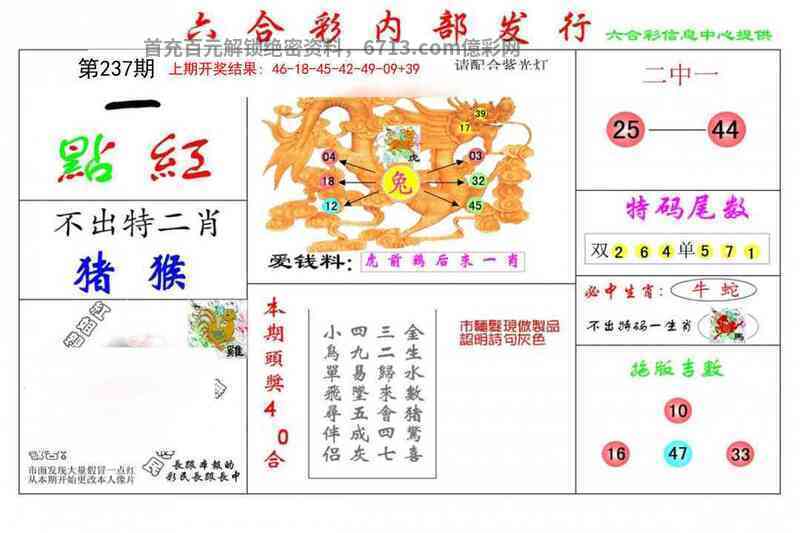 六合彩内部发行
六合彩信息中心提供
首充百元解锁绝密资料，6713.com億彩网
第237期
上期开奖结果：46-18-45-42-49-09+39
请配合紫光灯
一
點 紅
不出特二肖
猪 猴
雞
市面发现大量假冒一点红
从本期开始更改本人像片
長跟本報的
彩民長跟長中
39
17
虎
04
03
18
兔
32
12
45
爱钱料：
虎前鸡后来一肖
本期頭獎40合
金生水數豬驚喜
三二歸來會四七
四九易墜五成灰
小鳥單飛尋伴侶
市麵髮現倣製品
認明詩句灰色
二中一
25
44
特码尾数
双264单571
必中生肖：
牛 蛇
不出特码一生肖
馬
拖版吉数
10
16
47
33